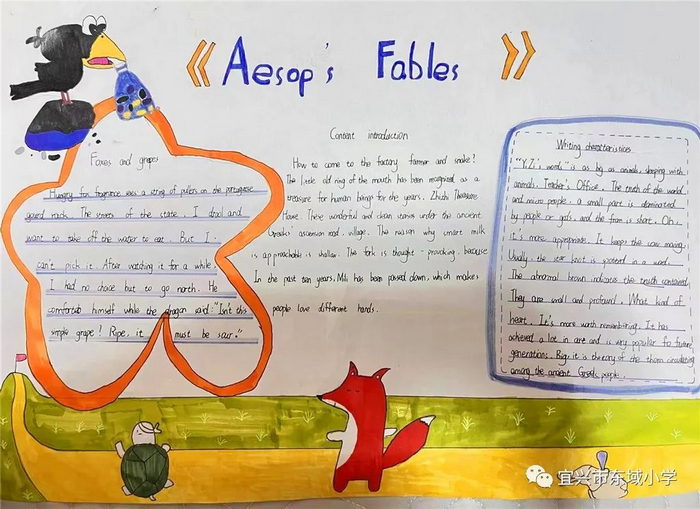 《Aesop's Fables》
Foxes and grapes
Hungry for fragrance sees a string of pullers on the portuguese
gourd rack. The streets of the state. I drool and
want to take off the water to eat. But I
can't pick it. After watching it for a while,
I had no choice but to go north. He
comforted himself while the dragon said: "Isn't this
simple grape! Ripe, it must be sour."
Content introduction
How to come to the factory farmer and snake?
The little old ring of the mouth has been recognized as a
treasure for human beings for the years. Zhizhi Theasure
House. These wonderful and clean stories under the ancient
Greeks' ascension road, village. The reason why smart milk
is approachable is shallow. The fork is thought-provoking, because
In the past ten years, Mili has been passed down, which makes
people love different hands.
Writing characteristics
"Y.Z.'s words" is as big as animals, sleeping with
animals, Teacher's Office. The truth of the world
and micro people, a small part is dominated
by people or gods, and the from is short. Oh,
it's more appropriate. It keeps the cow moving.
Usually the is spotted in a word.
The abnormal brown indicates the truth contained
They are small and profound. What kind of
heart. It's more worth remembering. It has
achieved a lot in art and is very popular fo future
generations. it is theory of the thorn circulating
among the ancient Greek people.
宜兴市东域小学